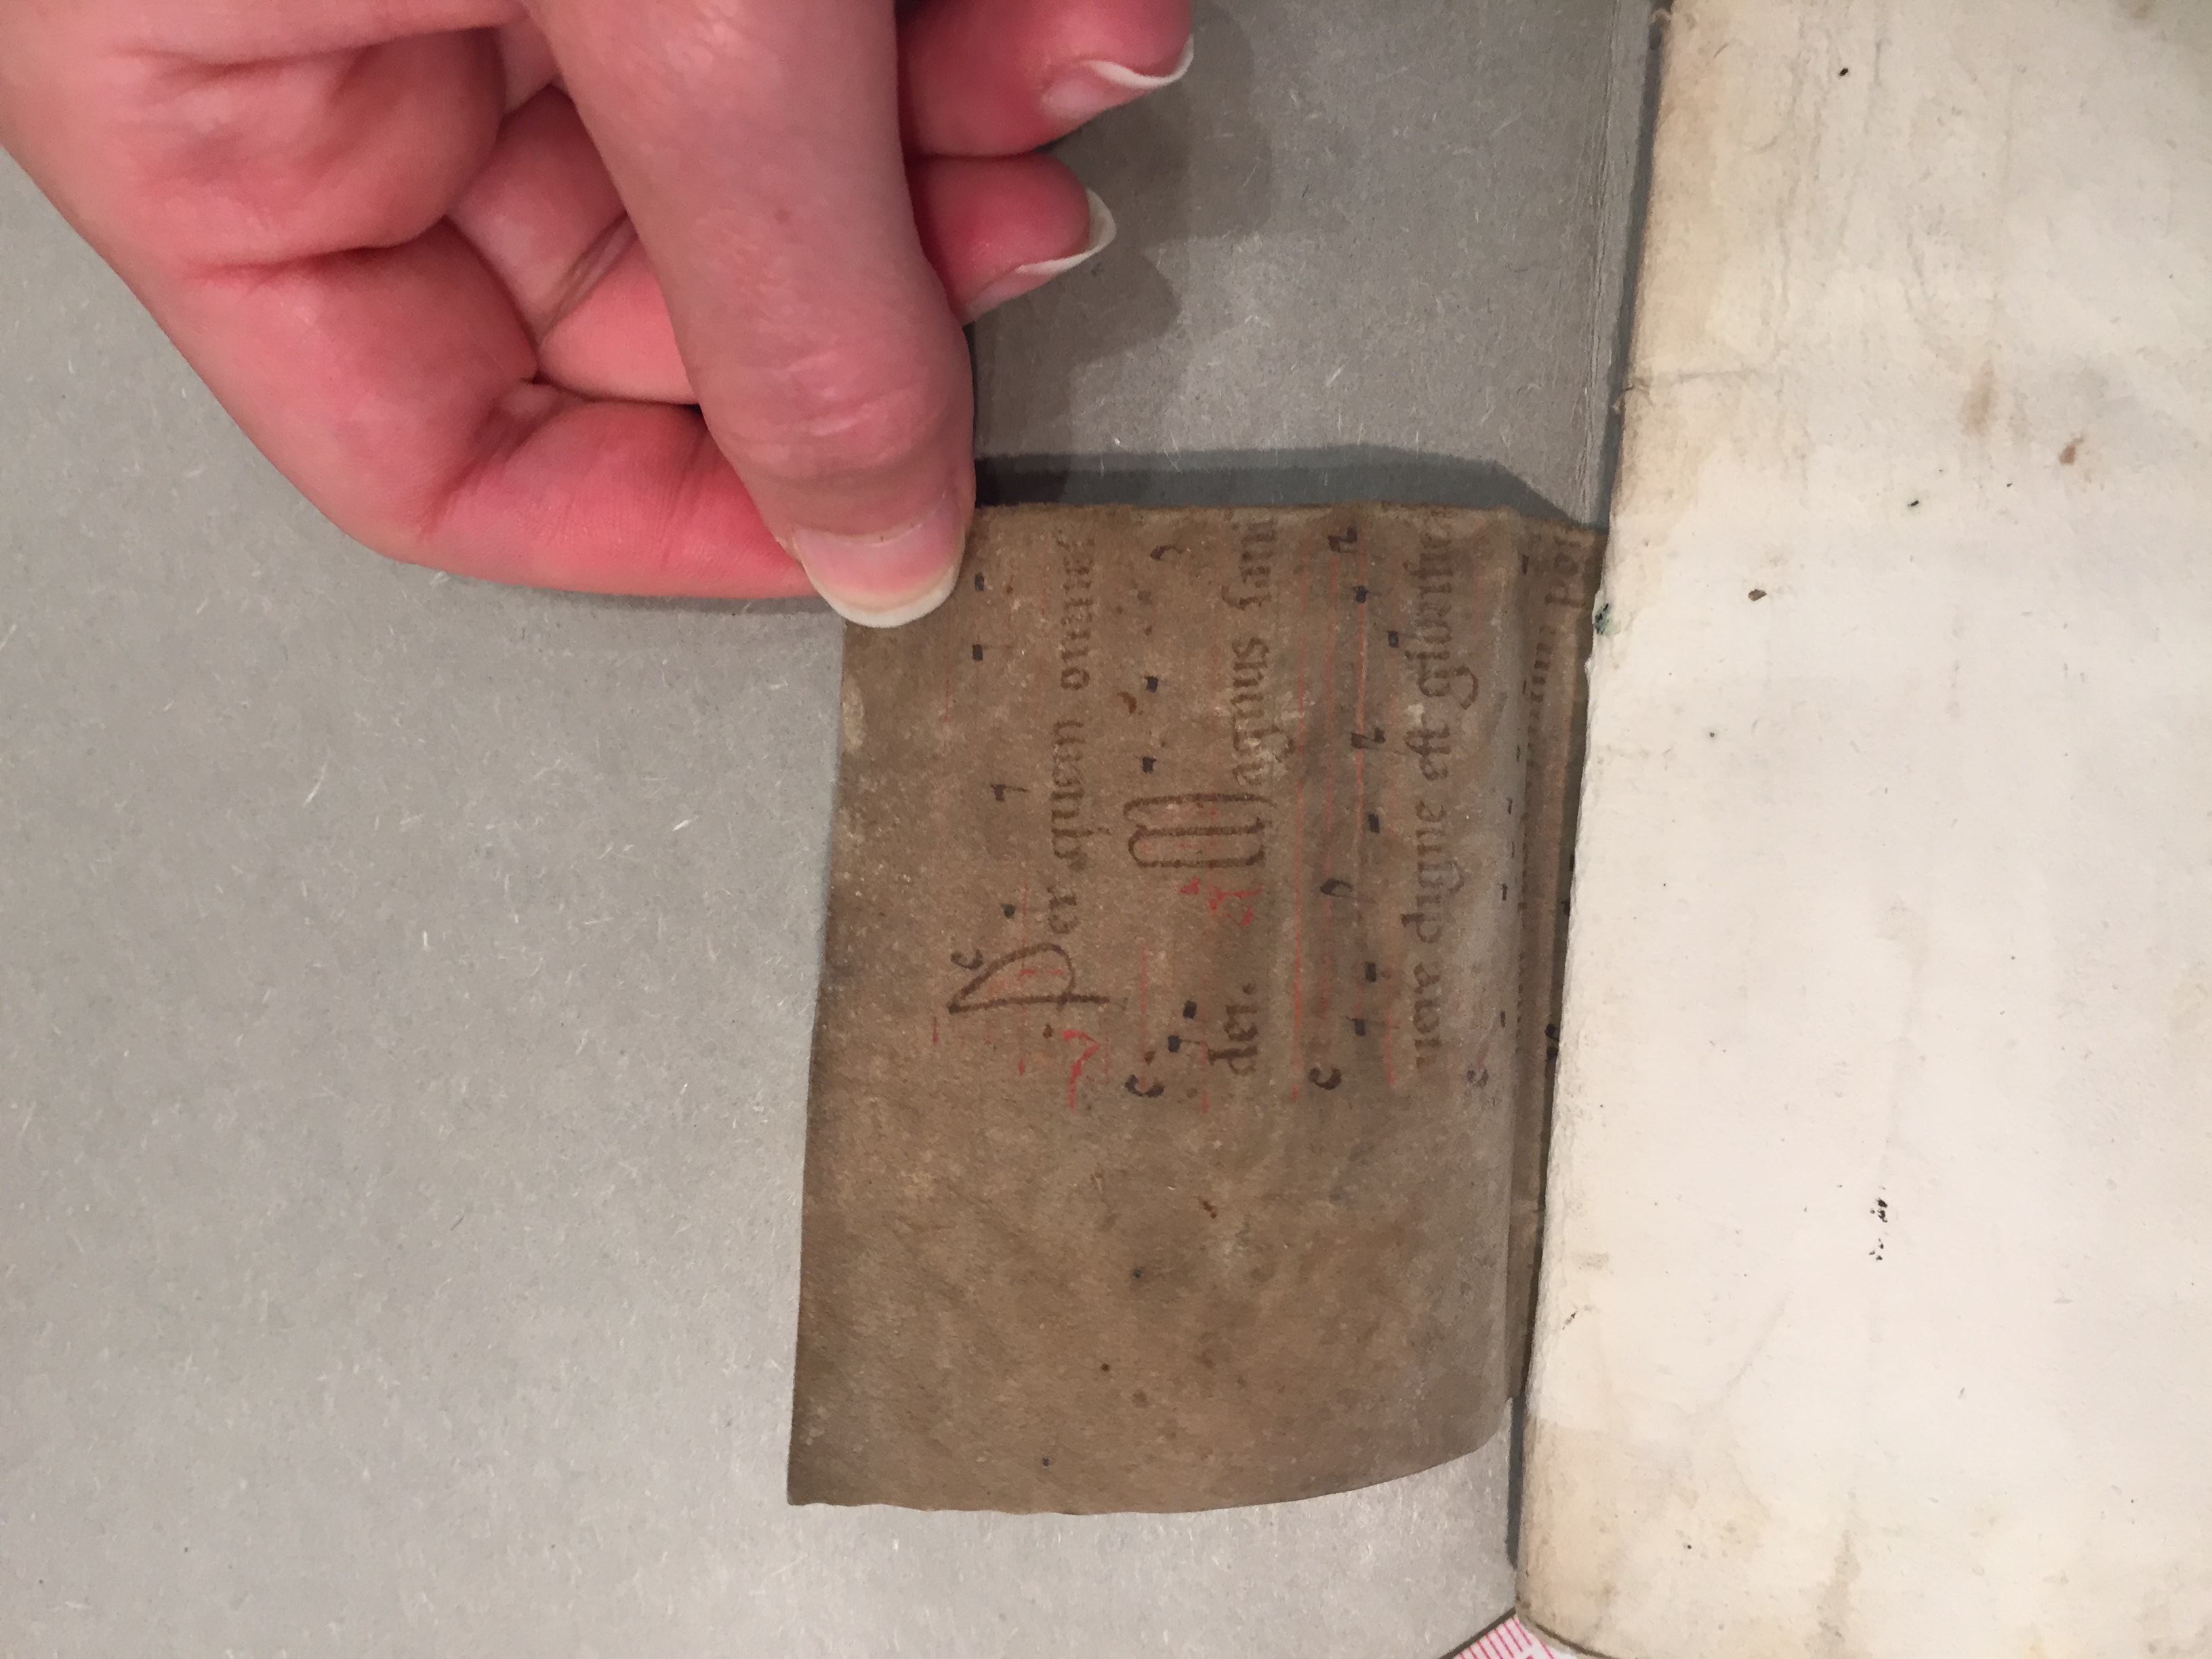 Per quem omnes
dei. a Magnus san
uere digne est glorific
por